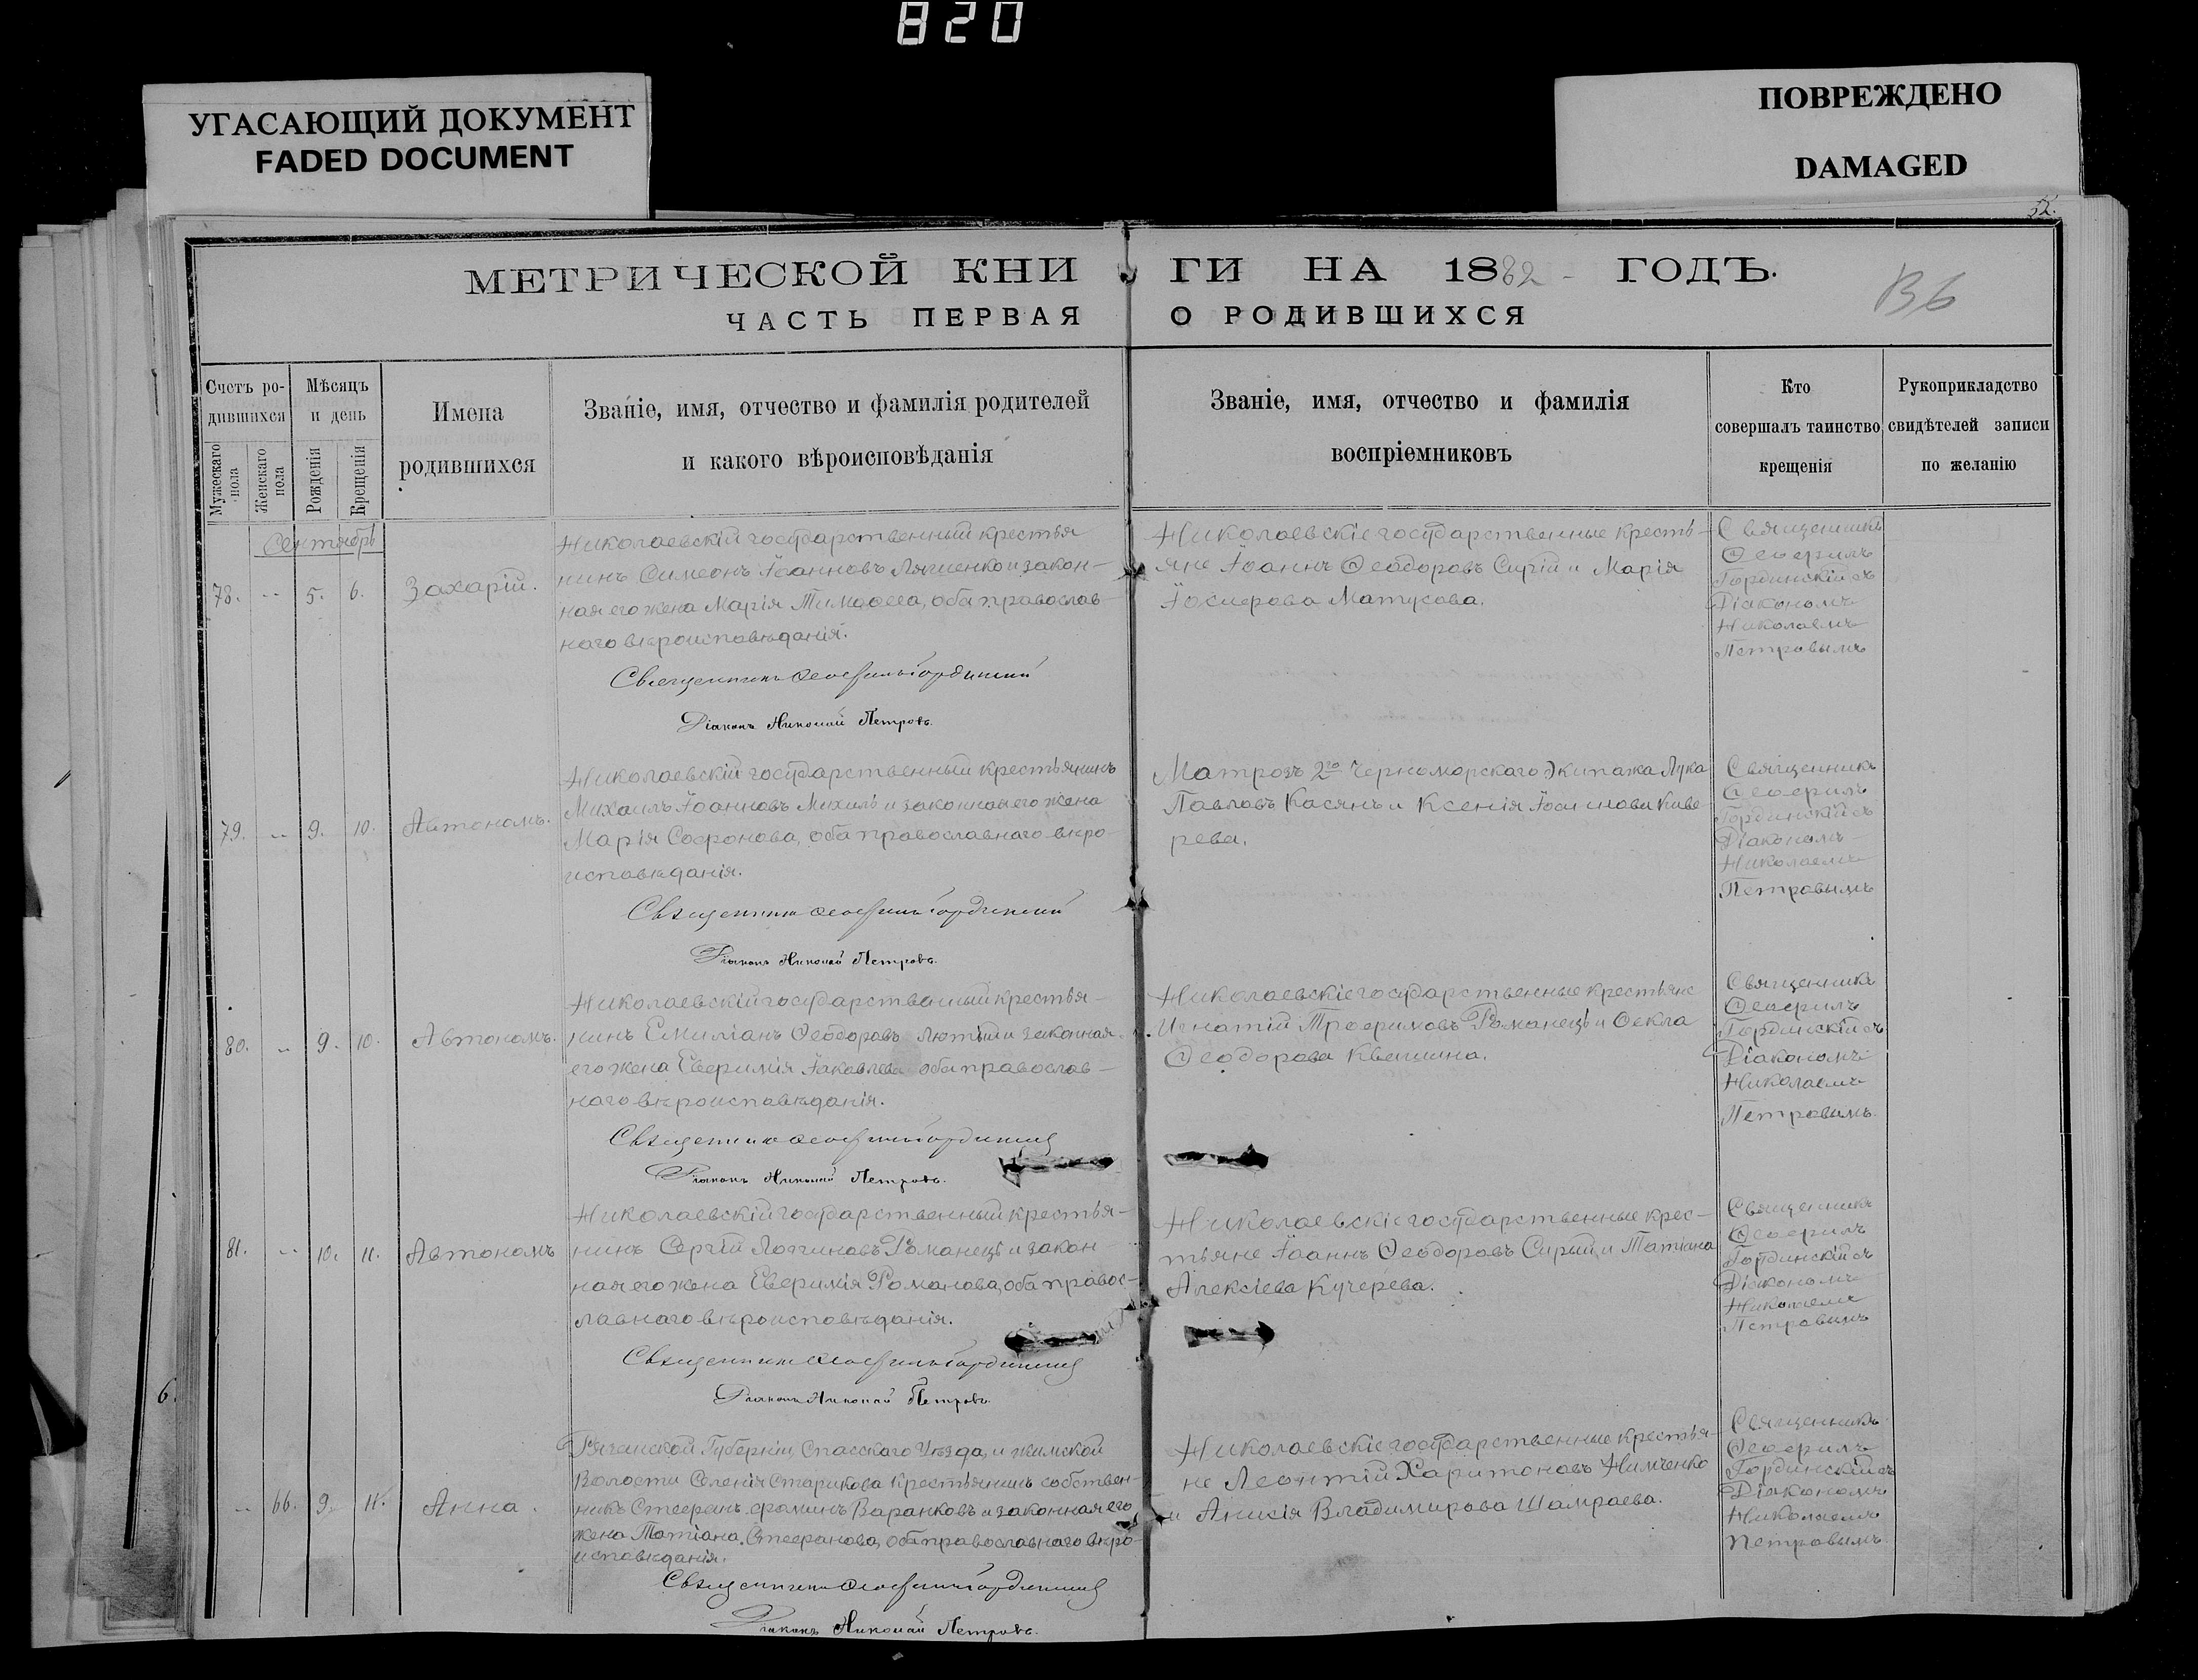 820
УГАСАЮЩИЙ ДОКУМЕНТ
FADED DOCUMENT
ПОВРЕЖДЕНО
DAMAGED
52.
МЕТРИЧЕСКОЙ КНИ ГИ НА 1882 ГОДЪ.
В6
ЧАСТЬ ПЕРВАЯ О РОДИВШИХСЯ
Счетъ ро-
дившихся
Мужескаго пола
Женскаго пола
Мѣсяцъ
и день
Рожденія
Крещенія
Имена
родившихся
Званіе, имя, отчество и фамилія родителей
и какого вѣроисповѣданія
Званіе, имя, отчество и фамилія
воспріемниковъ
Кто
совершалъ таинство
крещенія
Рукоприкладство
свидѣтелей записи
по желанію
Сентябрь
78. -- 5. 6. Захарій.
Николаевскій государственный крестья
нинъ Симеонъ Іоанновъ Ляшенко и закон-
ная его жена Марія, оба православ-
наго вѣроисповѣданія.
Священникъ Ѳеофилъ Гординскій
Діаконъ Николай Петровъ.
Николаевскіе государственные кресть-
яне Іоаннъ Ѳеодоровъ Сирій и Марія
Іосифова Матусова.
Священникъ
Ѳеофилъ
Гординскій съ
Діакономъ
Николаемъ
Петровымъ
79. -- 9. 10. Автономъ.
Николаевскій государственный крестьянинъ
Михаилъ Іоанновъ и законная его жена
Марія Софронова, оба православнаго вѣро-
исповѣданія.
Священникъ Ѳеофилъ Гординскій
Діаконъ Николай Петровъ.
Матрозъ 2го Черноморскаго Экипажа Лука
Павловъ Касянъ и Ксенія Киве-
рева.
Священникъ
Ѳеофилъ
Гординскій съ
Діакономъ
Николаемъ
Петровымъ
80. -- 9. 10. Автономъ.
Николаевскій государственный крестья-
нинъ Емиліанъ Ѳеодоровъ Лютый и законная
его жена Евфимія Іаковлева оба православ-
наго вѣроисповѣданія.
Священникъ Ѳеофилъ Гординскій
Діаконъ Николай Петровъ.
Николаевскіе государственные крестьяне
Игнатій Трофимовъ Романецъ и Ѳекла
Ѳеодорова Квашина.
Священникъ
Ѳеофилъ
Гординскій съ
Діакономъ
Николаемъ
Петровымъ.
81. -- 10. 11. Автономъ
Николаевскій государственный крестья-
нинъ Сергій Логгиновъ Романецъ и закон
ная его жена Евфимія Романова, оба правос-
лавнаго вѣроисповѣданія.
Священникъ Ѳеофилъ Гординскій
Діаконъ Николай Петровъ
Николаевскіе государственные крес-
тьяне Іоаннъ Ѳеодоровъ Сирій и Татіана
Алексіева Кучерева.
Священникъ
Ѳеофилъ
Гординскій съ
Діакономъ
Николаемъ
Петровымъ
6.
-- 66. 9. 11. Анна.
Рязанской Губерніи, Спасскаго Уѣзда, Ижимской
Волости Селенія Старикова крестьянинъ собствен-
никъ Стефанъ Ѳоминъ Варанковъ и законная его
жена Татіана Стефанова, оба православнаго вѣро-
исповѣданія.
Священникъ Ѳеофилъ Гординскій
Діаконъ Николай Петровъ.
Николаевскіе государственные крестья-
не Леонтій Харитоновъ Нимченко
и Анисія Владимирова Шамраева.
Священникъ
Ѳеофилъ
Гординскій съ
Діакономъ
Николаемъ
Петровымъ